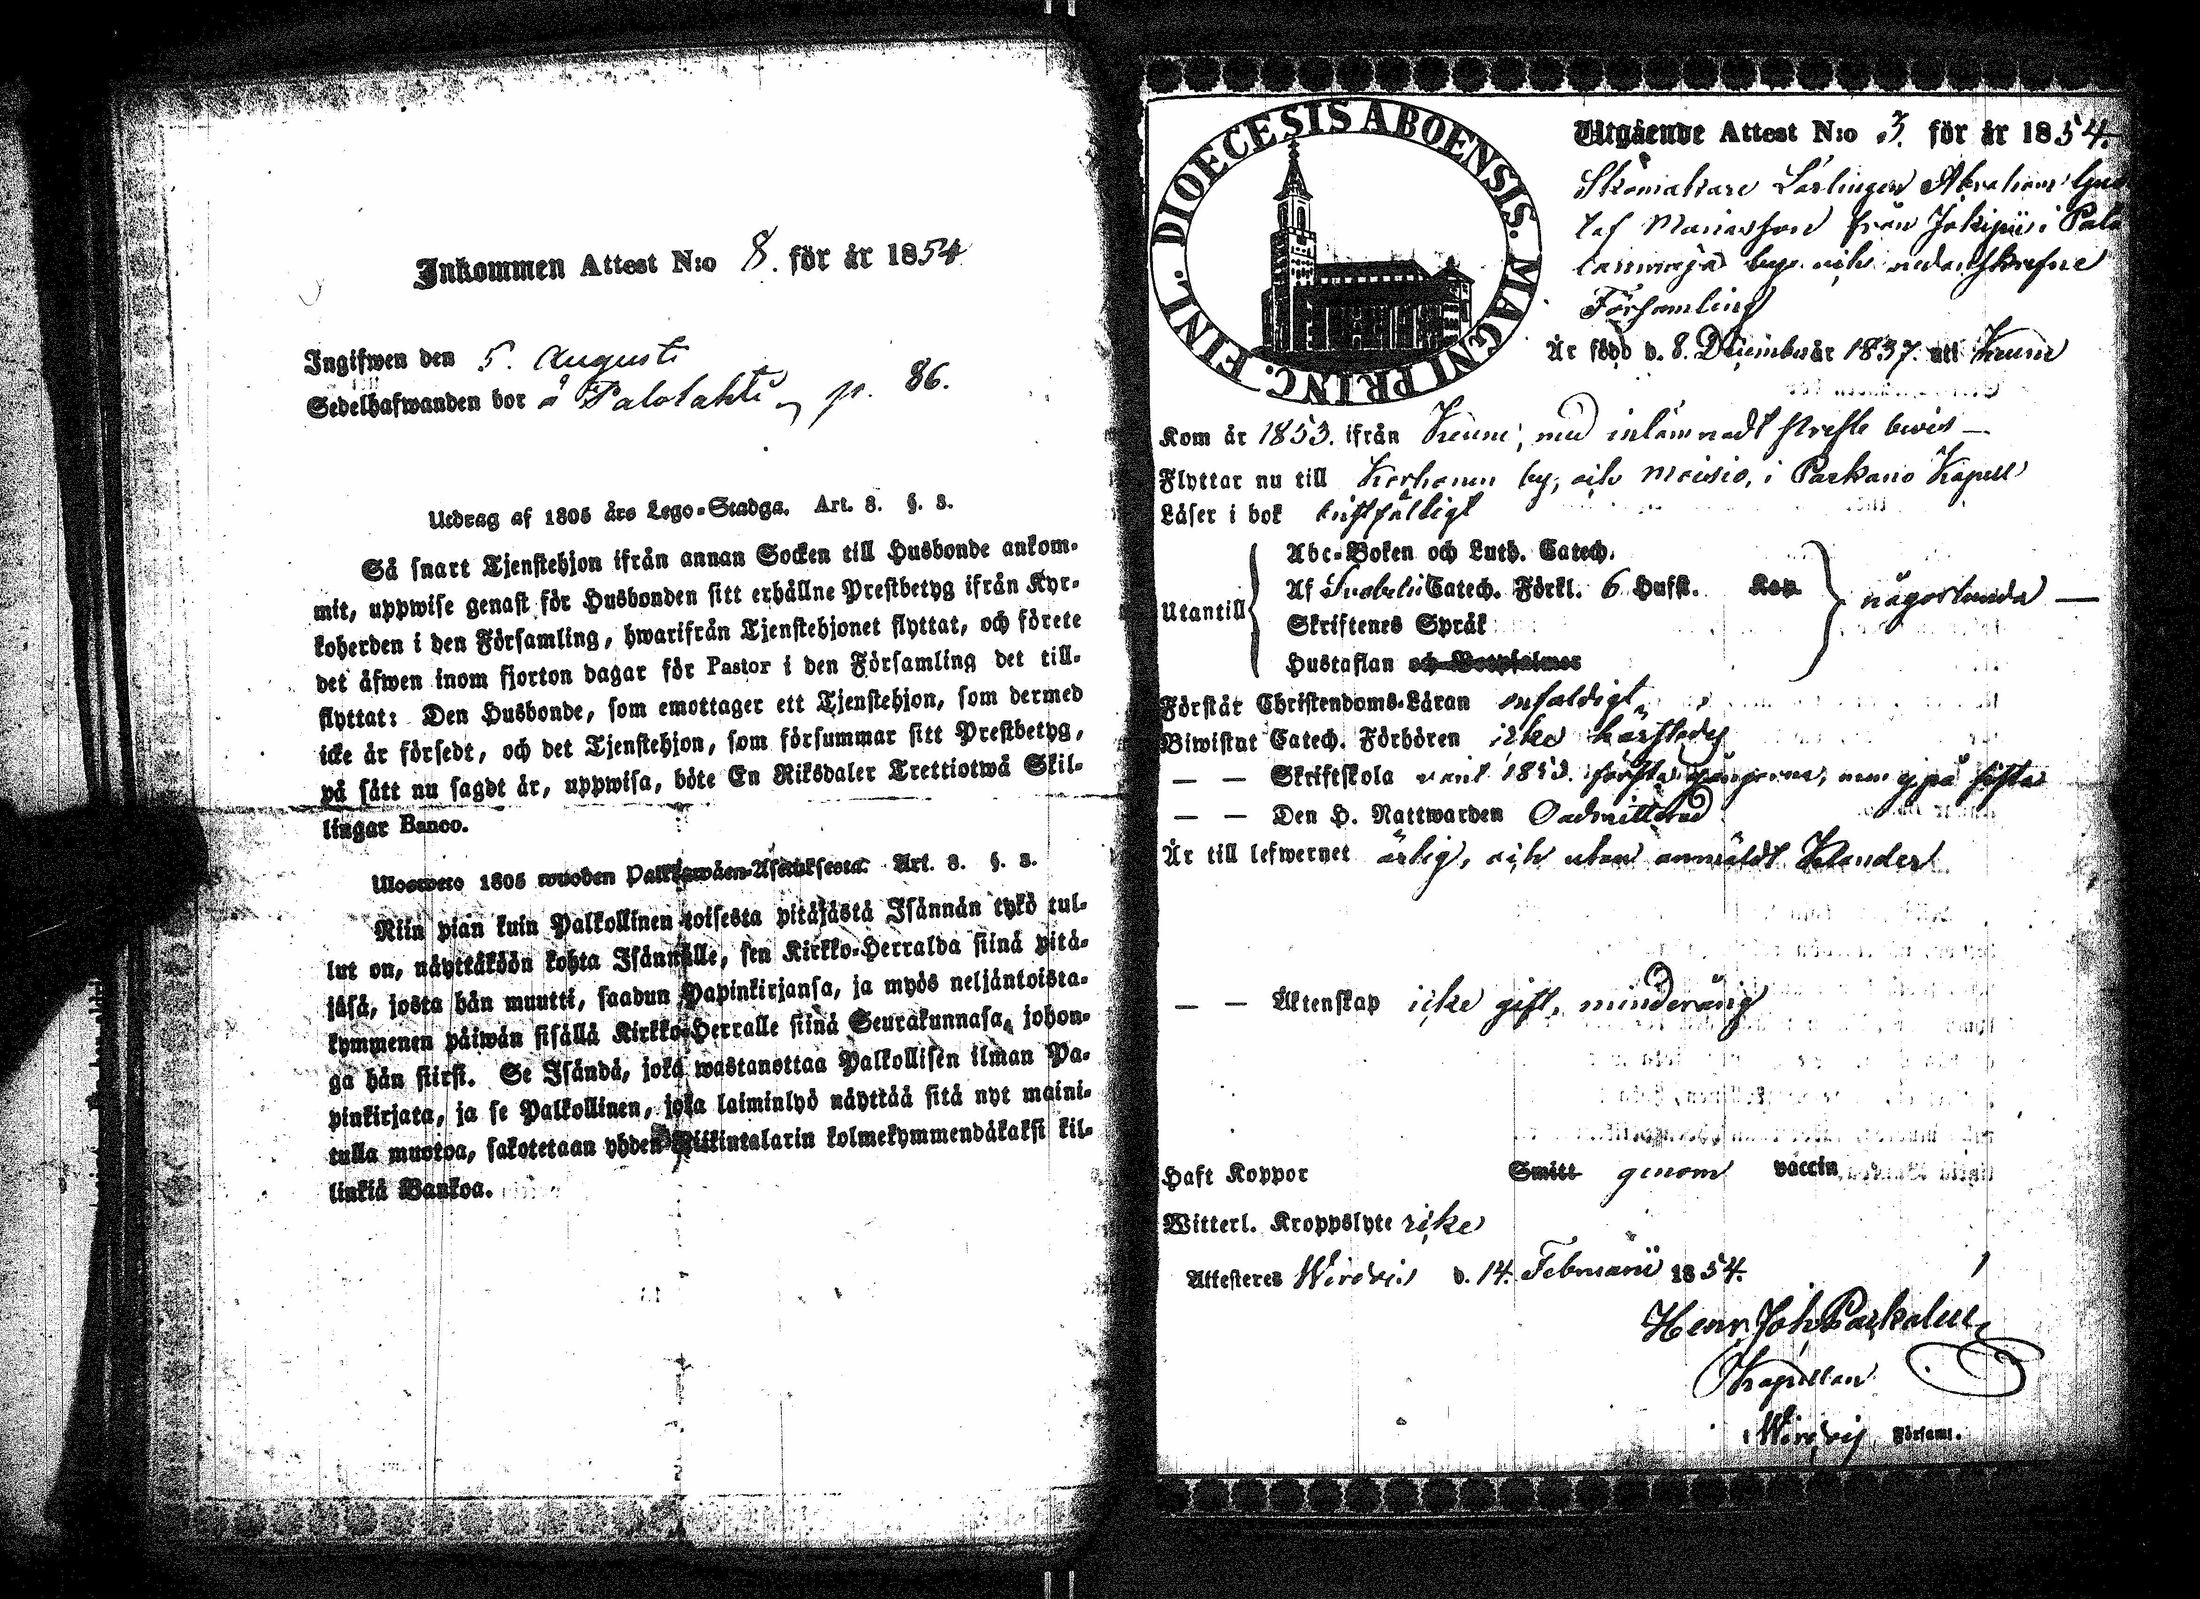 Inkommen Attest N:o 8. för år 1854
Ingifwen den 5. Augusti
Sedelhafwanden bor å Palolahti, p. 86.
Utdrag af 1805 års Lego-Stadga. Art. 8. §. 3.
Så snart Tjenstehjon ifrån annan Socken till Husbonde ankom-
mit, uppwise genast för Husbonden sitt erhållne Prestbetyg ifrån Kyr-
koherden i den Församling, hwarifrån Tjenstehjonet flyttat, och förete
det äfwen inom fjorton dagar för Pastor i den Församling det till-
flyttat: Den Husbonde, som emottager ett Tjenstehjon, som dermed
icke är försedt, och det Tjenstehjon, som försummar sitt Prestbetyg,
på sätt nu sagdt är, uppwisa, böte En Riksdaler Trettiotwå Skil-
lingar Banco.
Ulosweto 1805 wuoden Palkkawäen-Asetuksesta. Art. 8. §. 3.
Niin pian kuin Palkollinen toisesta pitäjästä Isännän tykö tul-
lut on, näyttäköön kohta Isännälle, sen Kirkko-Herralda siinä pitä-
jäsä, josta hän muutti, saadun Papinkirjansa, ja myös neljäntoista-
kymmenen päiwän sisällä Kirkko-Herralle siinä Seurakunnasa, johon-
ga hän siirsi. Se Isändä, joka wastanottaa Palkollisen ilman Pa-
pinkirjata, ja se Palkollinen, joka laiminlyö näyttää sitä nyt maini-
tulla muotoa, sakotetaan yhden Riikintalarin kolmekymmendäkaksi kil-
linkiä Bankoa.
DIOECESIS ABOENSIS. MAGNI PRINC. FINL.
Utgående Attest N:o 3. för år 1854.
Skomakare Lärlingen Abraham Gus
taf Mariasson från Jokipii i Pala
by och nedanskrefne
Församling
Är född d. 8. December år 1837. uti Keuru
Kom år 1853. ifrån Keuru, med inlemnadt Preste bevis —
Flyttar nu till Korhonen by, och Moisio, i Parkano Kapell
Läser i bok
Utantill
Abc-Boken och Luth. Catech.
Af Svebelii Catech. Förkl. 6 Hufst. Kap
Skriftenes Språk
Hustaflan och Botpsalmer
någorlunda —
Förstår Christendoms-Läran enfaldigt
Biwistat Catech. Förhören icke härstädes
— — Skriftskola 1853. första gångerna, men ej på sista
— — Den H. Nattwarden Oadmitterad
Är till lefwernet ärlig, och utan anmäldt klander
— — Äktenskap icke gift, minderårig
Haft Koppor Smitt genom vaccin
Witterl. Kroppslyte icke
Attesteres Wirdois d. 14. Februarii 1854.
Henr. Joh. Parkalin
Kapellan
i Wirdois Församl.